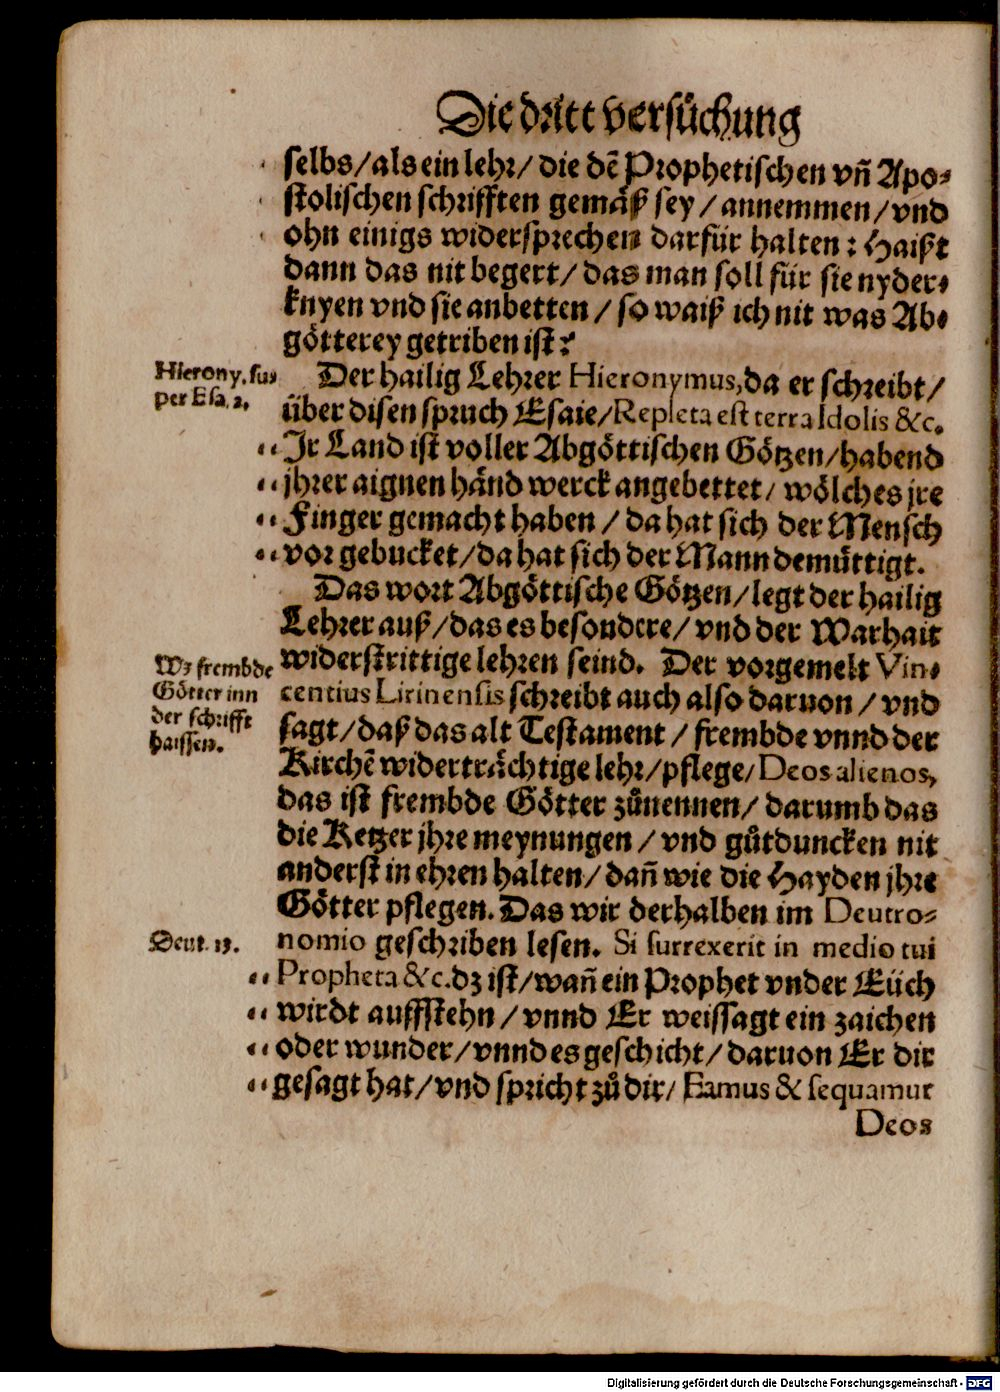 Die dritt versuͦchung
selbs / als ein lehr / die dẽ Prophetischen vñ Apo-
stolischen schrifften gemäß sey / annemmen / vnd
ohn einigs widersprechen darfür halten: Haißt
dann das nit begert / das man soll für sie nyder-
knyen vnd sie anbetten / so waiß ich nit was Ab-
götterey getriben ist?
Hierony. su-
per Esa. 2.
Der hailig Lehrer Hieronymus, da er schreibt /
über disen spruch Esaie / Repleta est terra Idolis &c.
Ir Land ist voller Abgöttischen Götzen / habend
jhrer aignen händ werck angebettet / wölches jre
Finger gemacht haben / da hat sich der Mensch
vor gebucket / da hat sich der Mann demüttigt.
Das wort Abgöttische Götzen / legt der hailig
Lehrer auß / das es besondere / vnd der Warhait
widerstrittige lehren seind. Der vorgemelt Vin-
Wz frembde
Götter inn
der schrifft
haissen.
centius Lirinensis schreibt auch also daruon / vnd
sagt / daß das alt Testament / frembde vnnd der
Kirchẽ widerträchtige lehr / pflege / Deos alienos,
das ist frembde Götter zuͦnennen / darumb das
die Ketzer jhre meynungen / vnd guͦtduncken nit
anderst in ehren halten / dañ wie die Hayden jhre
Götter pflegen. Das wir derhalben im Deutro-
Deut. 13.
nomio geschriben lesen. Si surrexerit in medio tui
Propheta &c. dz ist / wañ ein Prophet vnder Eüch
wirdt auffstehn / vnnd Er weissagt ein zaichen
oder wunder / vnnd es geschicht / daruon Er dir
gesagt hat / vnd spricht zuͦ dir / Eamus & sequamur
Deos
Digitalisierung gefördert durch die Deutsche Forschungsgemeinschaft - DFG